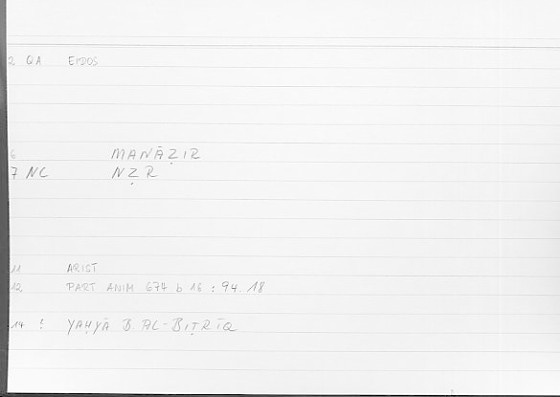 2 QA EIDOS
6 MANĀẒIR
7 NC NẒR
11 ARIST
12 PART ANIM 674 b 16 : 94.18
14 ! YAḤYĀ B AL-BIṬRĪQ